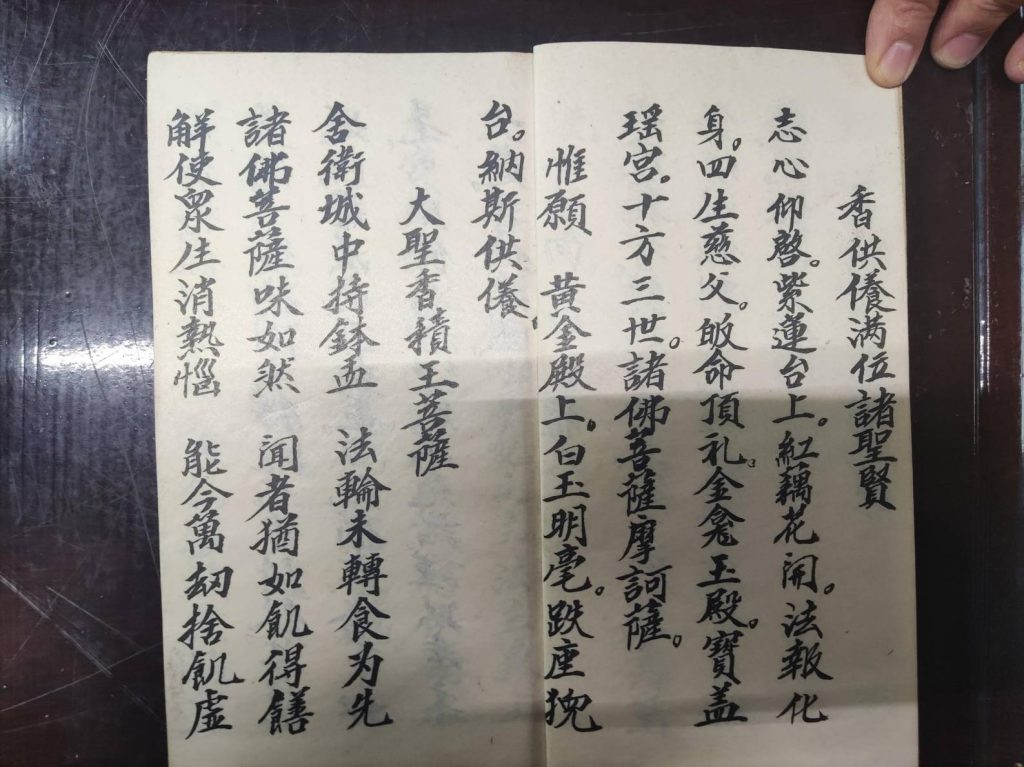 香供養满位諸聖賢
志心仰啓。紫蓮台上。紅藕花開。法報化
身。四生慈父。皈命頂礼。金龛玉殿。寳盖
瑶宮。十方三世。諸佛菩薩摩訶薩。
惟願 黄金殿上。白玉明毫。跌座猊
台。納斯供養。
大聖香積王菩薩
舍衛城中持鉢盂 法輪未轉食为先
諸佛菩薩味如然 聞者猶如飢得饍
解使衆生消熱惱 能今萬劫捨飢虛